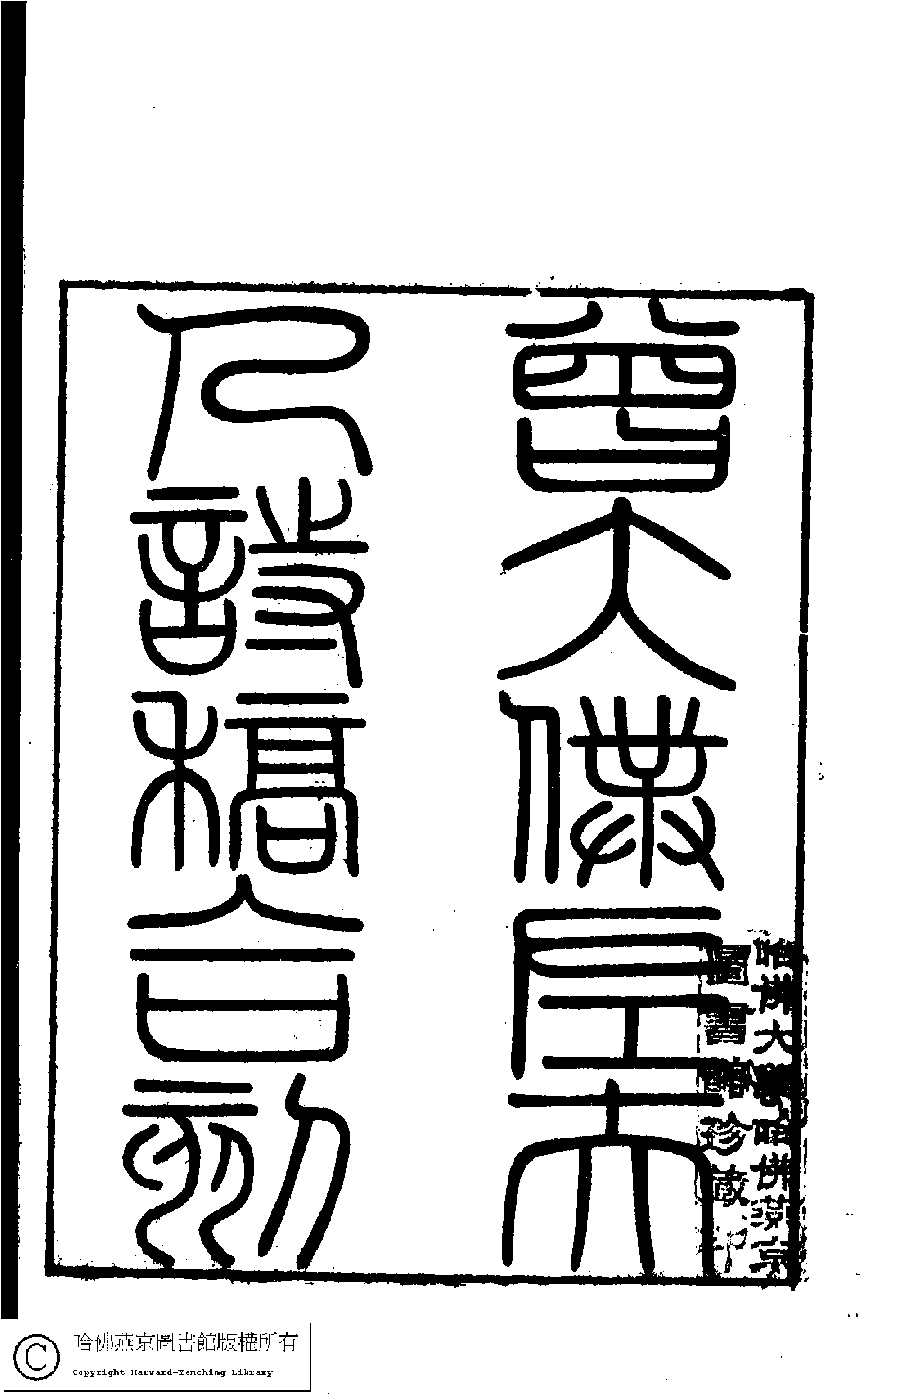 曾大僕左夫
人詩稿合刻
哈佛大學哈佛燕京
圖書館珍藏印
© 哈佛燕京圖書館版權所有
Copyright Harvard-Yenching Library